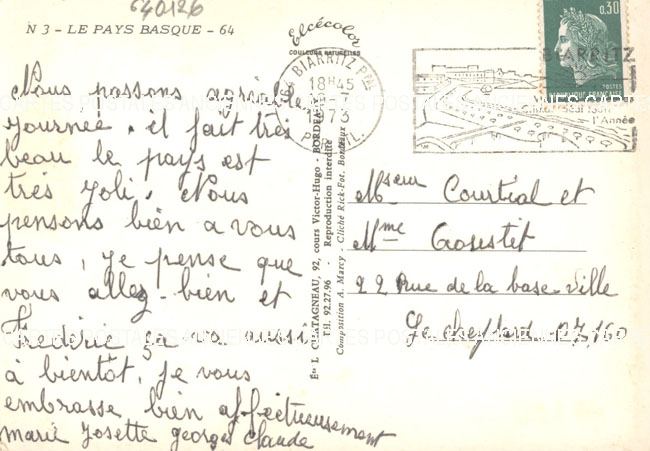 640126
N 3 - LE PAYS BASQUE - 64
Elcécolor
COULEURS NATURELLES
64 BIARRITZ Pal
18H45
1973
0.30
POSTES
REPUBLIQUE FRANÇAISE
BIARRITZ
l'Année
Nous passons agréable
journée. il fait très
beau le pays est
très joli. Nous
pensons bien a vous
tous, je pense que
vous allez bien et
Frédéric ça va aussi
à bientôt. je vous
embrasse bien affectueusement
marie Josette georges claude
Éts L. CHATAGNEAU, 92, cours Victor-Hugo - BORDEAUX
TH. 92.27.96 - Reproduction interdite
Composition A. Marcy - Cliché Rick-Fot, Bordeaux
Mseur Courtial et
Mme
22 Rue de la base Ville
Le cheylard 07,160
CARTES POSTALES ANCIENNES